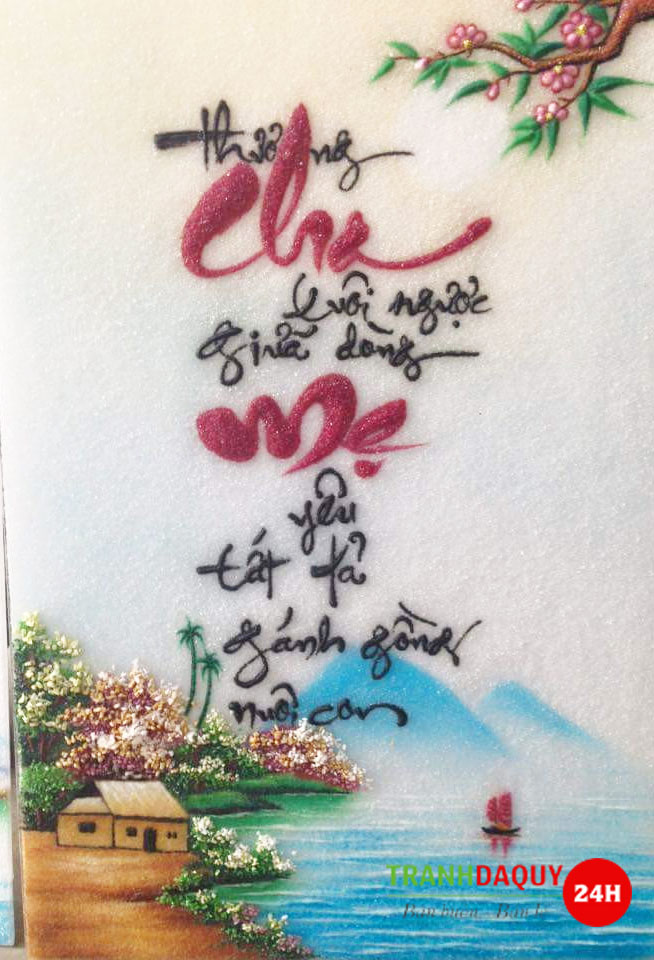 thương
Cha
xuôi ngược
giữa dòng
Mẹ
yêu
tất tả
gánh gồng
nuôi con
TRANHDAQUY
24H
Bán buôn - Bán lẻ